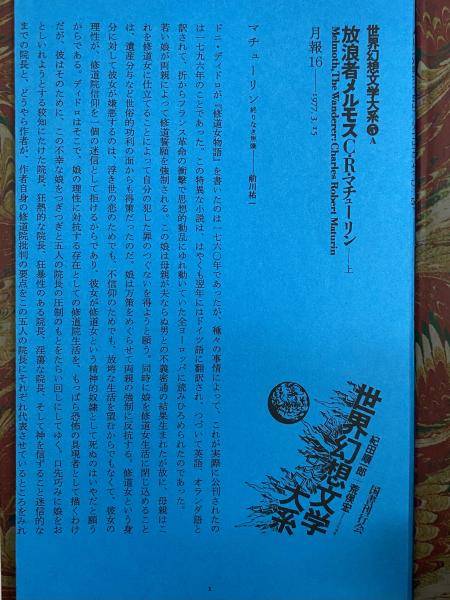 世界幻想文学大系⑤A
放浪者メルモス C・R・マチューリン──上
Melmoth, The Wanderer・Charles Robert Maturin
月報16──1977.3.25
世界幻想文学大系
紀田順一郎
荒俣宏
国書刊行会
マチューリン 終りなき無償──前川祐一
ドニ・ディドロが『修道女物語』を書いたのは一七六〇年であったが、種々の事情によって、これが実際に公刊されたの
は一七九六年のことであった。この特異な小説は、はやくも翌年にはドイツ語に翻訳され、つづいて英語、オランダ語と
訳されて、折からフランス革命の衝撃で思想的動乱にゆれ動いていた全ヨーロッパに読みひろめられたのであった。
若い娘が両親によって修道誓願を強制される。この娘は母親が夫ならぬ男との不義密通の結果生まれたが故に、母親はこ
れを修道女に仕立てることによって自分の犯した罪のつぐないを得ようと願う。同時に娘を修道女生活に閉じ込めること
は、遺産分与など世俗的功利の面からも得策だったのだ。娘は万策をめぐらせて両親の強制に反抗する。修道女という身
分に対して彼女が嫌悪するのは、浮き世の恋のためでも、不信仰のためでも、放埒な生活を望むからでもなくて、彼女の
理性が、修道院信仰を一個の迷信として拒けるからであり、彼女が修道女という精神的奴隷として死ぬのはいやだと願う
からである。ディドロはそこで、娘の理性に対抗する存在としての修道院生活を、もっぱら恐怖の具現者として描くわけ
だが、彼はそのために、この不幸な娘をつぎつぎと五人の院長の圧制のもとをたらい回しにしてゆく。口先巧みに娘をお
としいれようとする狡知にたけた院長、狂熱的な院長、狂暴性のある院長、淫蕩な院長、そして神を信ずること迷信的な
までの院長と、どうやら作者が、作者自身の修道院批判の要点をこの五人の院長にそれぞれ代表させているところをみれ
1